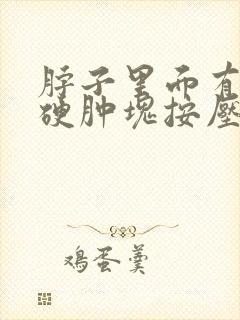 脖子里面有
硬肿块按压
鸡蛋羹